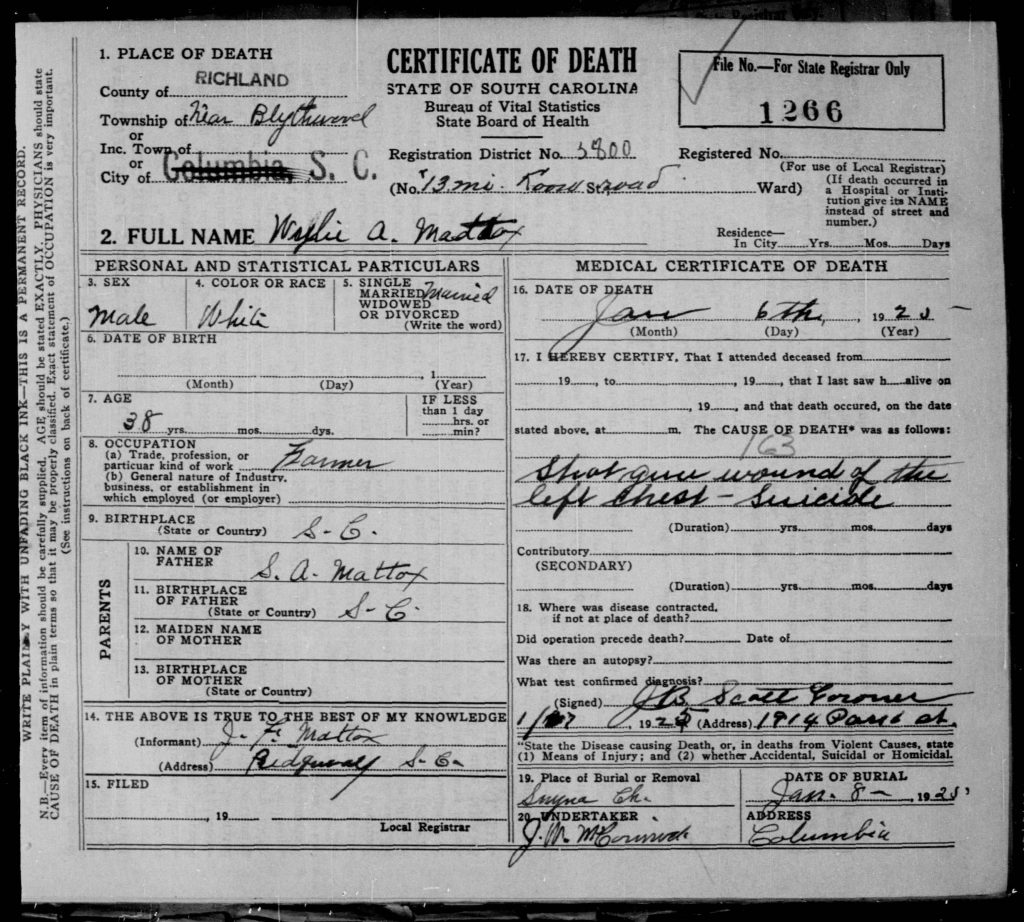 WRITE PLAINLY WITH UNFADING BLACK INK—THIS IS A PERMANENT RECORD.
N.B.—Every item of information should be carefully supplied. AGE should be stated EXACTLY. PHYSICIANS should state
CAUSE OF DEATH in plain terms so that it may be properly classified. Exact statement of OCCUPATION is very important.
(See instructions on back of certificate.)
1. PLACE OF DEATH
County of RICHLAND
Township of Near Blythwood
or
Inc. Town of
or
City of Columbia, S. C.
CERTIFICATE OF DEATH
STATE OF SOUTH CAROLINA
Bureau of Vital Statistics
State Board of Health
Registration District No. 3800
(No. 13 mi. St. road
File No.—For State Registrar Only
1266
Registered No.
(For use of Local Registrar)
Ward) (If death occurred in
a Hospital or Insti-
tution give its NAME
instead of street and
number.)
2. FULL NAME Wylie A. Mattox
Residence—
In City Yrs. Mos. Days
PERSONAL AND STATISTICAL PARTICULARS
3. SEX
Male
4. COLOR OR RACE
White
5. SINGLE
MARRIED
WIDOWED
OR DIVORCED
(Write the word)
Married
6. DATE OF BIRTH
, 1
(Month) (Day) (Year)
7. AGE
38 yrs. mos. dys.
IF LESS
than 1 day
hrs. or
min?
8. OCCUPATION
(a) Trade, profession, or
particuar kind of work Farmer
(b) General nature of Industry,
business, or establishment in
which employed (or employer)
9. BIRTHPLACE
(State or Country) S. C.
PARENTS
10. NAME OF
FATHER
S. A. Mattox
11. BIRTHPLACE
OF FATHER
(State or Country) S-C
12. MAIDEN NAME
OF MOTHER
13. BIRTHPLACE
OF MOTHER
(State or Country)
14. THE ABOVE IS TRUE TO THE BEST OF MY KNOWLEDGE
(Informant) J. F. Mattox
(Address) Ridgeway S.C.
15. FILED
, 19
Local Registrar
MEDICAL CERTIFICATE OF DEATH
16. DATE OF DEATH
Jan 6th, 1925
(Month) (Day) (Year)
17. I HEREBY CERTIFY, That I attended deceased from
19 , to , 19 , that I last saw h alive on
, 19 , and that death occured, on the date
stated above, at m. The CAUSE OF DEATH* was as follows:
163
Shot gun wound of the
left chest - Suicide
(Duration) yrs. mos. days
Contributory
(SECONDARY)
(Duration) yrs. mos. days
18. Where was disease contracted,
if not at place of death?
Did operation precede death? Date of
Was there an autopsy?
What test confirmed diagnosis?
(Signed) J B Scott Coroner
1/7 1925 (Address) 1914 st.
*State the Disease causing Death, or, in deaths from Violent Causes, state
(1) Means of Injury; and (2) whether Accidental, Suicidal or Homicidal.
19. Place of Burial or Removal
Smyna Ch.
DATE OF BURIAL
Jan. 8 - , 1925
20. UNDERTAKER
J. M.
ADDRESS
Columbia